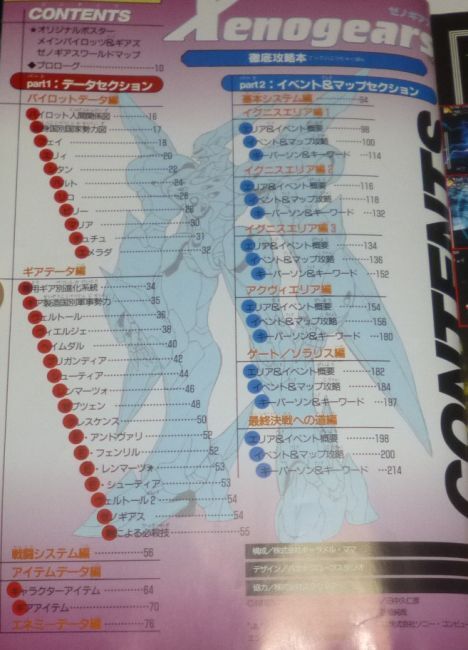 CONTENTS
Xenogears
ゼノギアス
徹底攻略本
★オリジナルポスター
メインパイロッツ&ギアズ
ゼノギアスワールドマップ
◆プロローグ 10
part1:データセクション
パイロットデータ編
パイロット人間関係図 16
国別国家勢力図 17
フェイ 18
エリィ 20
シタン 22
バルト 24
リコ 26
ビリー 28
マリア 30
チュチュ 31
エメラダ 32
ギアデータ編
専用ギア別進化系統 34
ギア製造国別軍事勢力 35
ヴェルトール 36
ヴィエルジェ 38
ヘイムダル 40
ブリガンディア 42
シューティア 44
レンマーツォ 46
ゼプツェン 48
クレスケンス 50
E・アンドヴァリ 52
E・フェンリル 52
E・レンマーツォ 53
E・シューティア 53
ヴェルトール2 54
ゼノギアス 54
による必殺技 55
戦闘システム編 56
アイテムデータ編
キャラクターアイテム 64
ギアアイテム 70
エネミーデータ編 76
part2:イベント&マップセクション
基本システム編 94
イグニスエリア編1
エリア&イベント概要 98
イベント&マップ攻略 100
キーパーソン&キーワード 114
イグニスエリア編2
エリア&イベント概要 116
イベント&マップ攻略 118
キーパーソン&キーワード 132
イグニスエリア編3
エリア&イベント概要 134
イベント&マップ攻略 136
キーパーソン&キーワード 152
アクヴィエリア編
エリア&イベント概要 154
イベント&マップ攻略 156
キーパーソン&キーワード 180
ゲート/ソラリス編
エリア&イベント概要 182
イベント&マップ攻略 184
キーパーソン&キーワード 197
最終決戦への道編
エリア&イベント概要 198
イベント&マップ攻略 200
キーパーソン&キーワード 214
構成/株式会社キャラメル・ママ
デザイン/
協力/株式会社
株式会社ソニー・コンピュー
CONTENTS